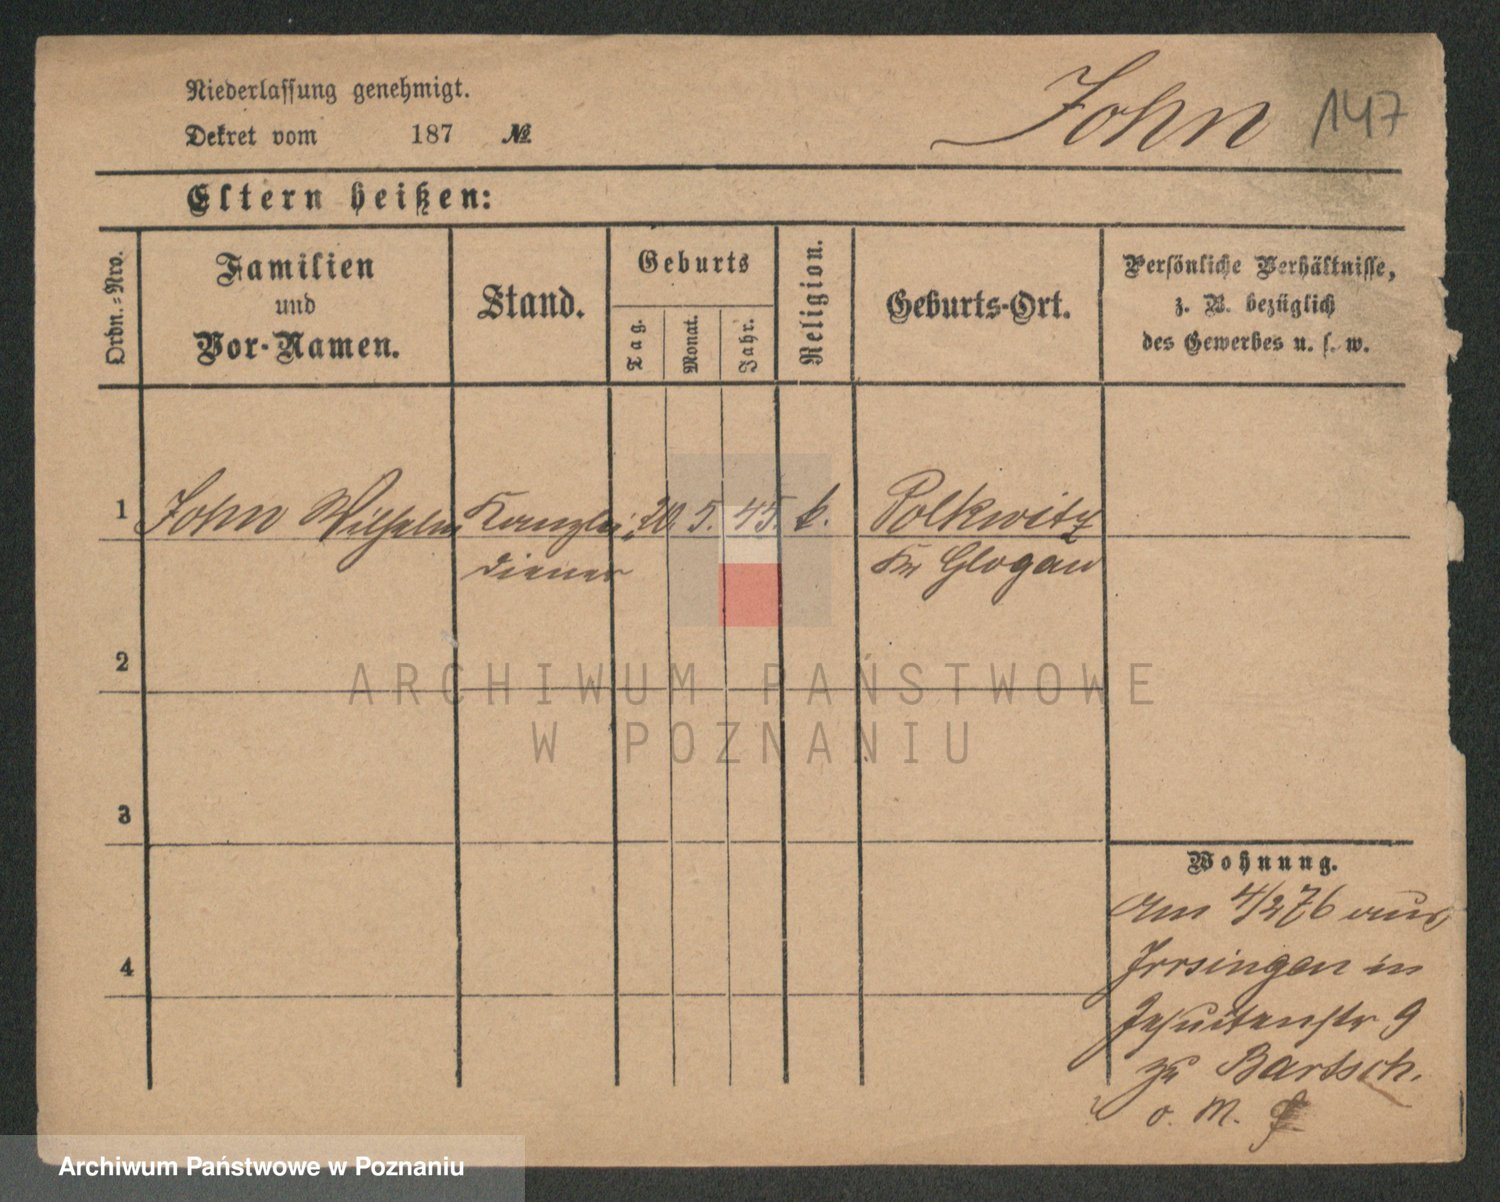 Niederlassung genehmigt.
Dekret vom 187 №
John 147
Eltern heißen:
Ordn.=Nro.
Familien
und
Vor-Namen.
Stand.
Geburts
Tag.
Monat.
Jahr.
Religion.
Geburts-Ort.
Persönliche Verhältnisse,
z. B. bezüglich
des Gewerbes u. s. w.
1 John Wilhelm Kanzlei 20. 5. 45. k. Polkwitz
diener Kr Glogau
2
3
4
Wohnung.
Am 4/2 76 aus
in
Jesuitenstr 9
zu Bartsch.
o. M.
ARCHIWUM PAŃSTWOWE
W POZNANIU
Archiwum Państwowe w Poznaniu